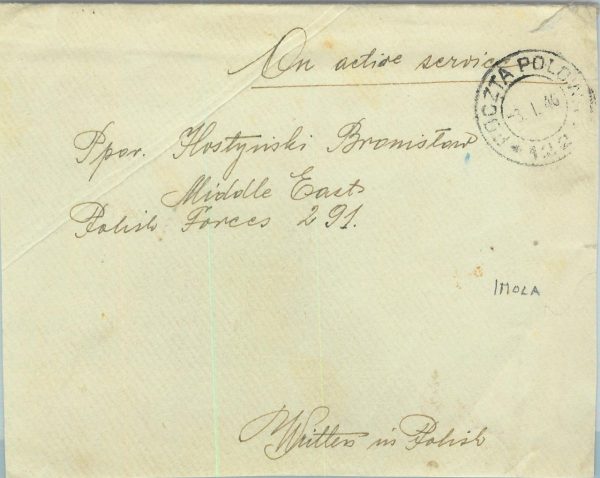 On active service
POCZTA POLOWA
3.I.46
* 122
Ppor. Hostyński Bronisław
Middle East
Polish Forces 291.
IMOLA
Written in Polish